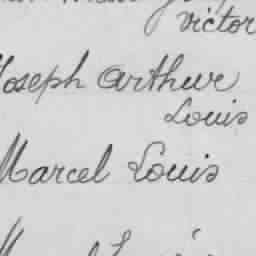 Victor
Joseph Arthur
Louis
Marcel Louis